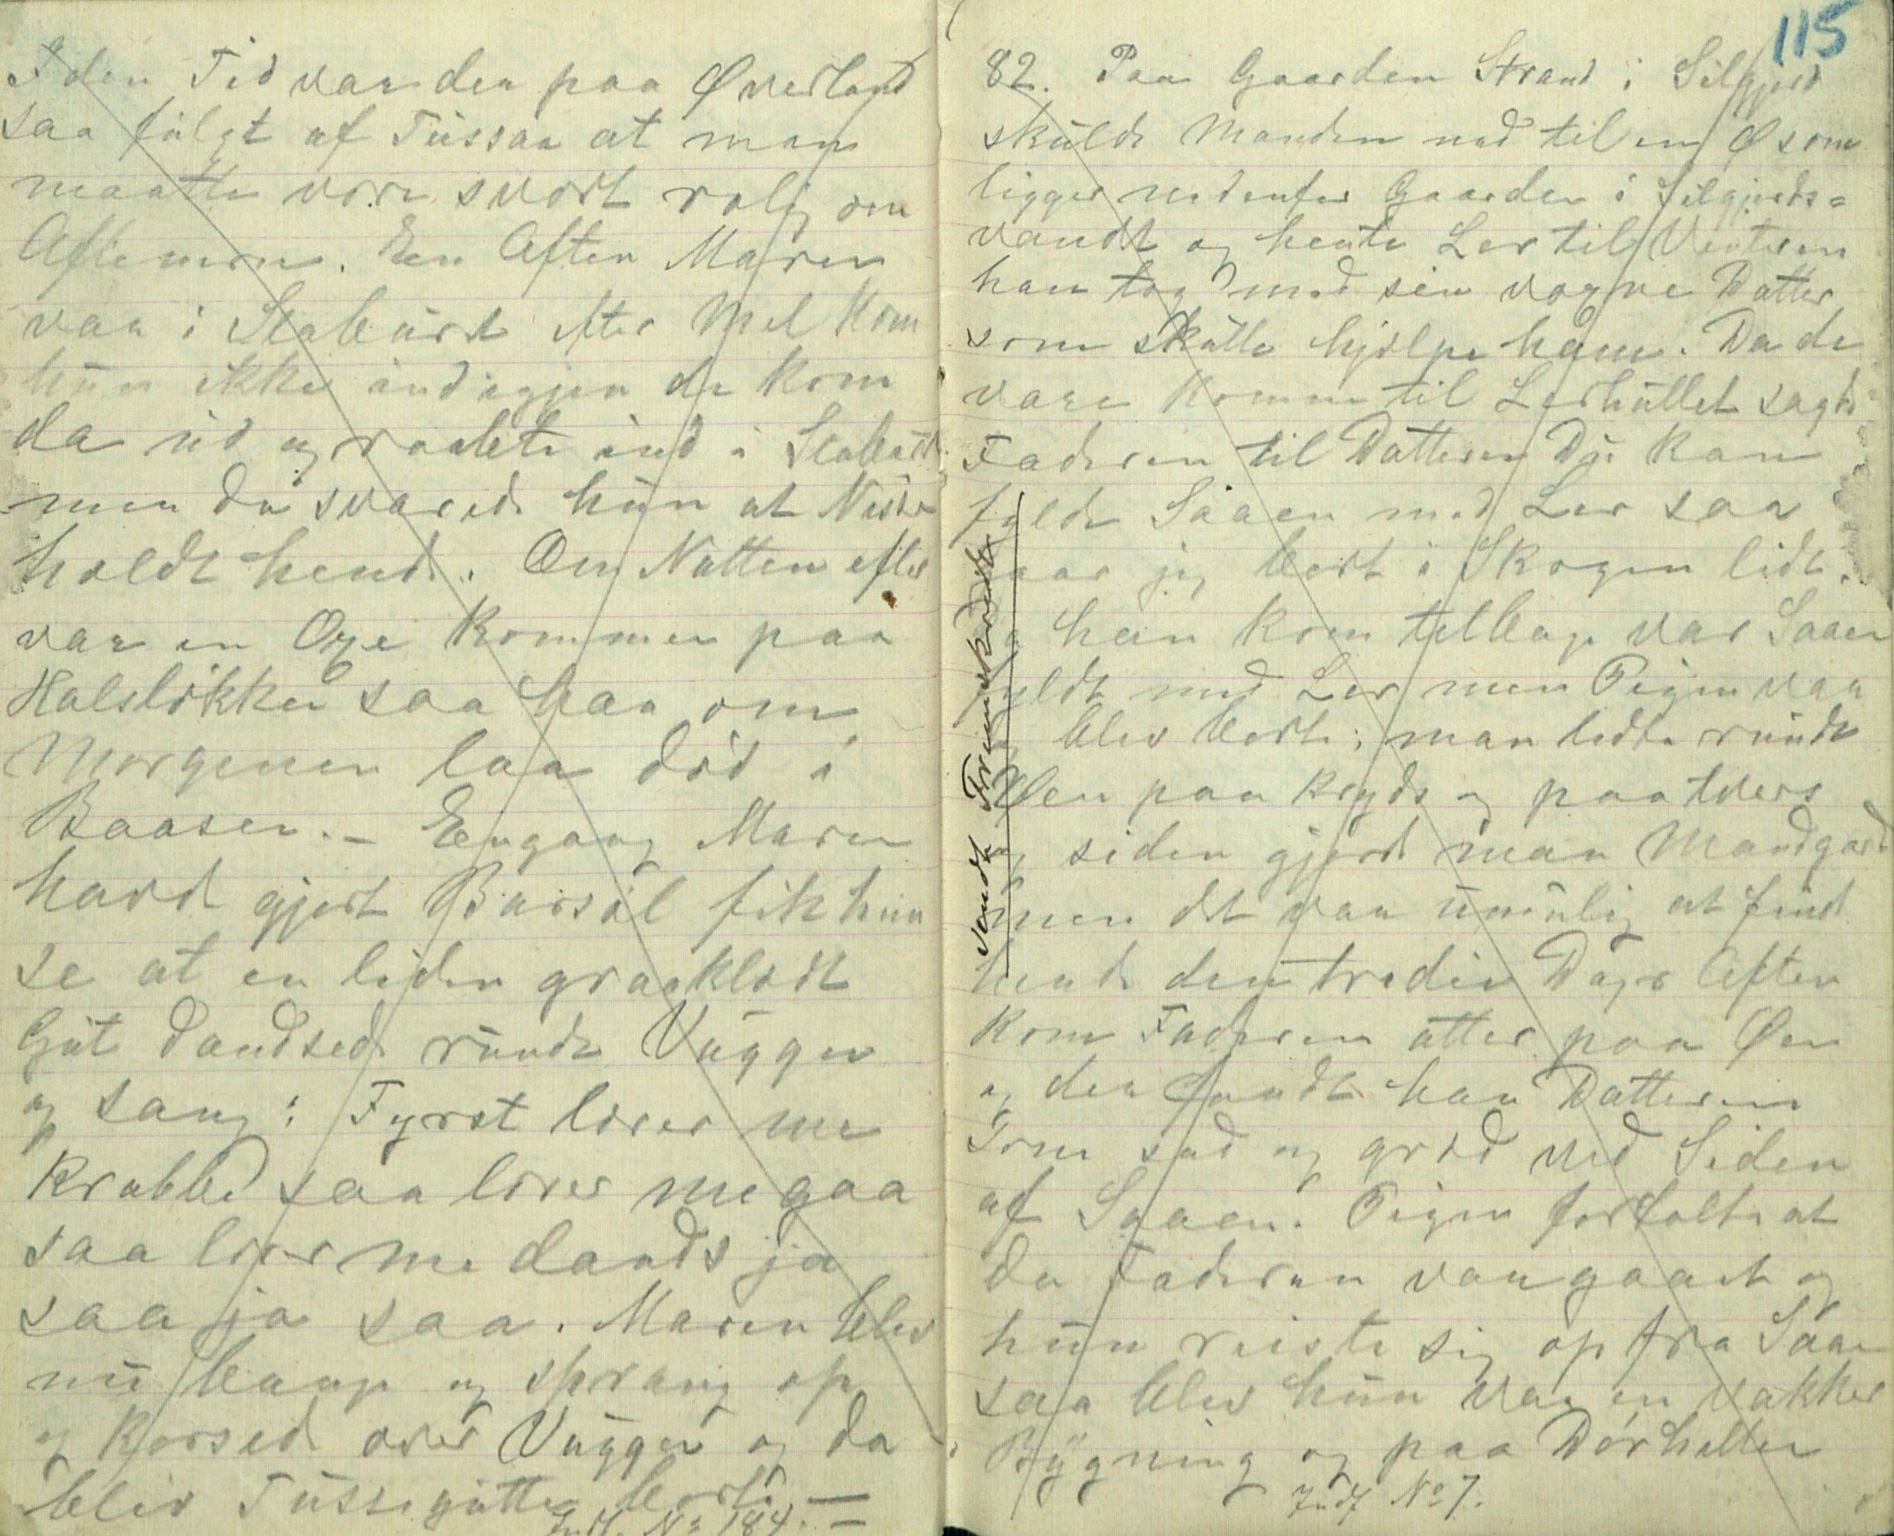 I den Tid var der paa Øverland
saa fulgt af Tussaa at man
maatte vere svert rolig om
Aftenerne. En Aften Maren
var i Stabburet efter Mel kom
hun ikke ind igjen de kom
da ud og raabte ind i Stabur
men da svarede hun at Nisse
holdt hende. Om Natten efter
var en Oxe kommen paa
Halsløkken saa han om
Morgenen laa død i
Baasen. – Engang Maren
havd gjort Barsøl fik hun
se at en liden graaklædt
Gut dandsed rundt Vuggen
og sang: Fyrst lærer me
krabbe saa lærer me gaa
saa lærer me dands ja
saa ja saa. Maren blev
nu bange og sprang op
og korsed over Vuggen og da
blev Tussegutten borte. —
Indf. No 184.
115
82. Paa Gaarden Strand i Silgjord
skulde Manden ned til en Ø som
ligger nedenfor Gaarden i Silgjords-
vandt og hente Ler til
han tog med sin voxne Datter
som skulle hjælpe ham. Da de
vare komne til Lerhullet sagde
Faderen til Datteren Du kan
fylde Saaen med Ler saa
gaar jeg bort i Skogen lidt.
Da han kom tilbage var Saaen
fyldt med Ler men Pigen var
og blev borte; man ledte rundt
Øen paa kryds og paa tvers
og siden gjord man Mandgard
men det var umulig at finde
hende den tredie Dags Aften
kom Faderen atter paa Øen
og der fandt han Datteren
som sad og græd ved Siden
af Saaen. Pigen fortalte at
da Faderen var gaaet og
hun reiste sig op fra Saaen
saa blev hun var en vakker
Bygning og paa Dørhellen
Indf No 7.